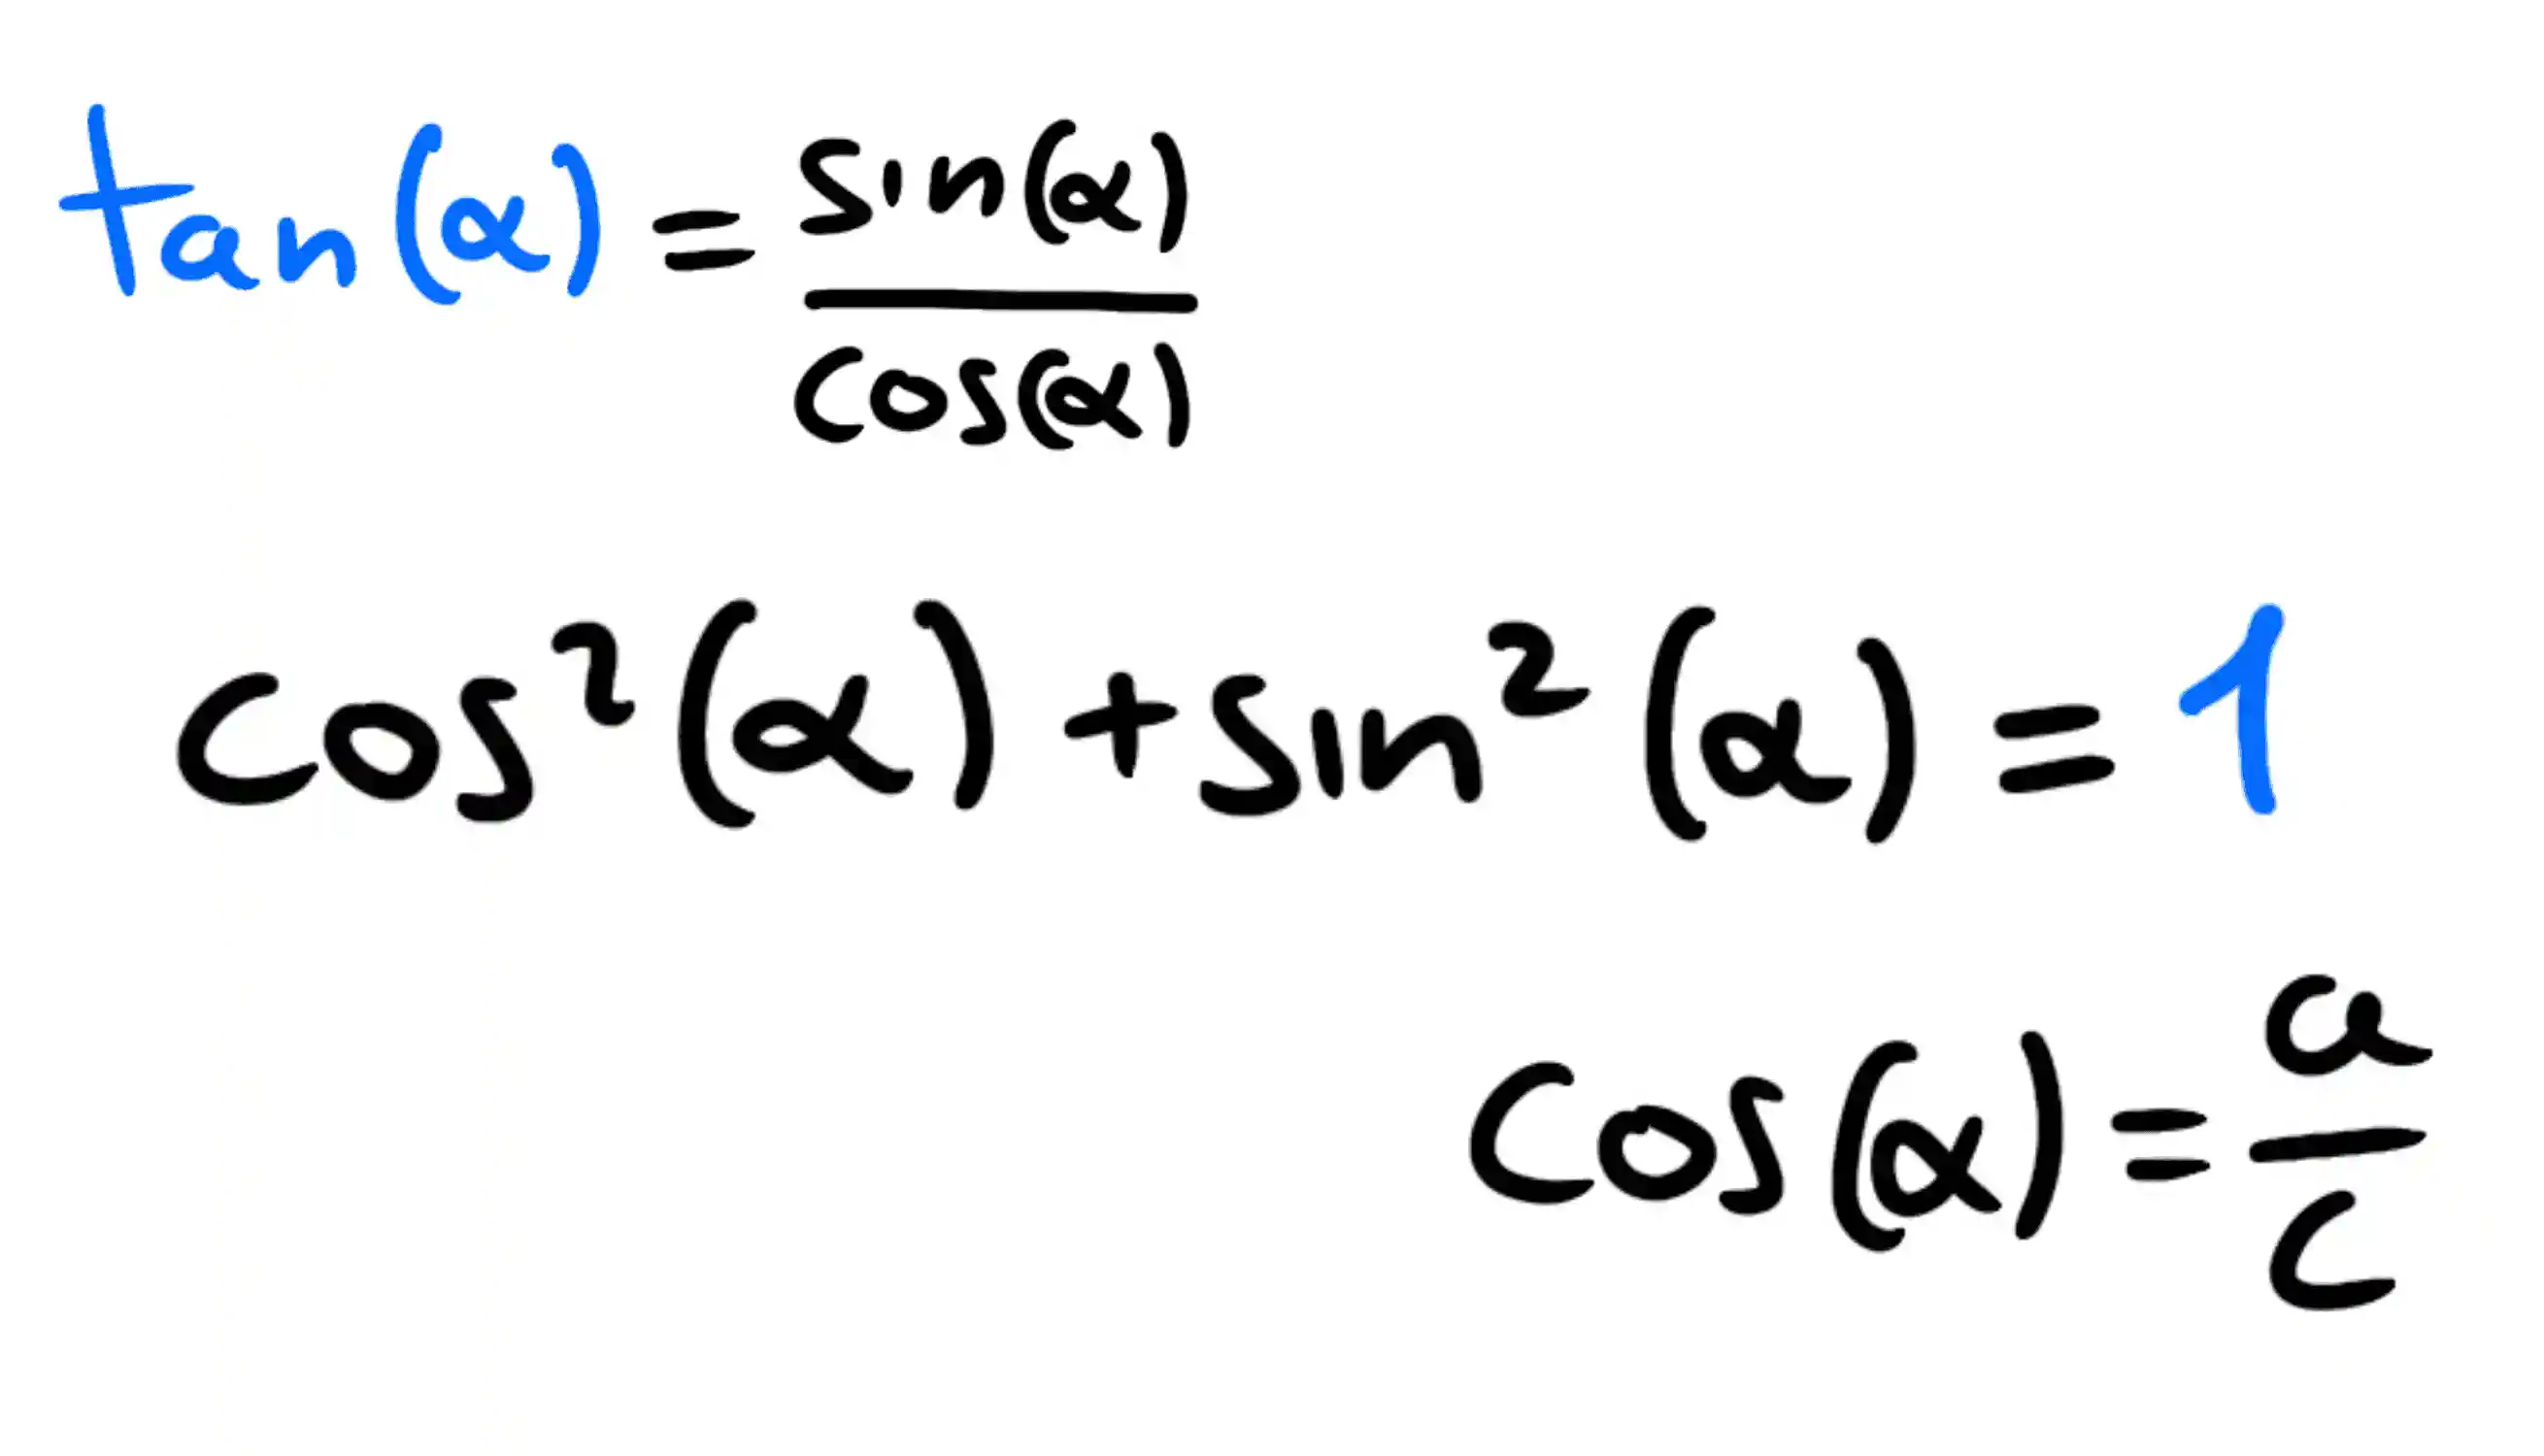 tan(α) = sin(α)/cos(α)
cos²(α) + sin²(α) = 1
cos(α) = a/c